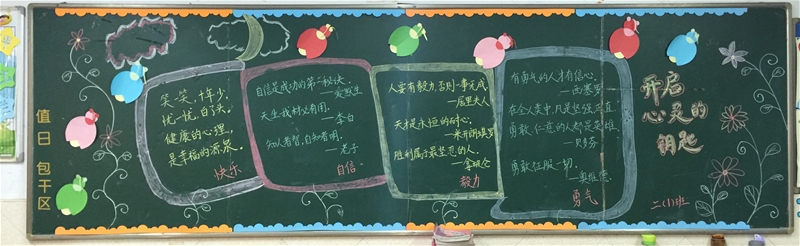 值日 包干区
笑一笑,十年少,
忧一忧,白了头。
健康的心理,
是幸福的源泉。
快乐
自信是成功的第一秘诀。
——爱默生
天生我材必有用。
——李白
知人者智,自知者明。
——老子
自信
人要有毅力,否则一事无成
——居里夫人
天才是永恒的耐心。
——米开朗琪罗
胜利属于最坚忍的人。
——拿破仑
毅力
有勇气的人才有信心。
——西塞罗
在全人类中,凡是坚强、正直、
勇敢、仁慈的人都是英雄。
——贝多芬
勇敢征服一切。
勇气
开启
心灵的
钥匙
二(1)班